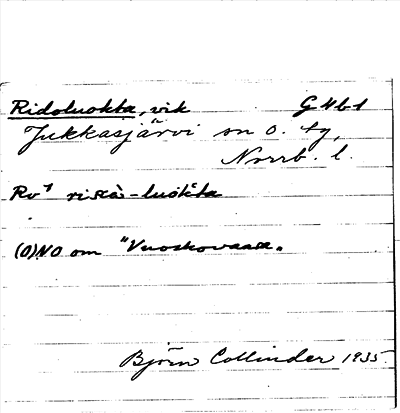 Ridoluokta, vik G4b1
Jukkasjärvi sn o. tg,
Norrb. l.
Rv¹ -luokta
(O)NO om "Vuoskovaara"
Björn Collinder 1935